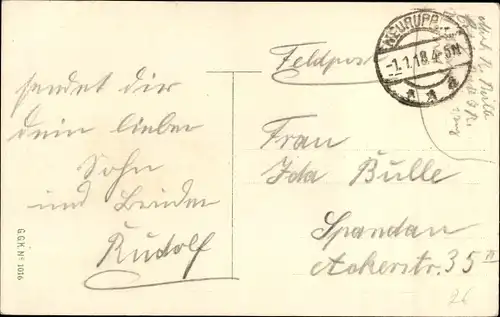 sendet dir
dein lieber
Sohn
und Bruder
Rudolf
G.G.K. No 1016
Feldpost
NEURUPP
-1.1.18.4-5N
a a a
Frau
Ida Bulle
Spandau
Ackerstr. 35 II
26